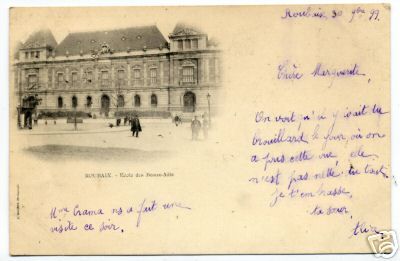 Roubaix, 30 9bre 99.
Chère Marguerite,
On voit qu'il y avait du
brouillard le jour, où on
a pris cette vue, elle
n'est pas nette du tout
Je t'embrasse,
ta sœur,
ROUBAIX. - École des Beaux-Arts
Mme Crama ns a fait une
visite ce soir.